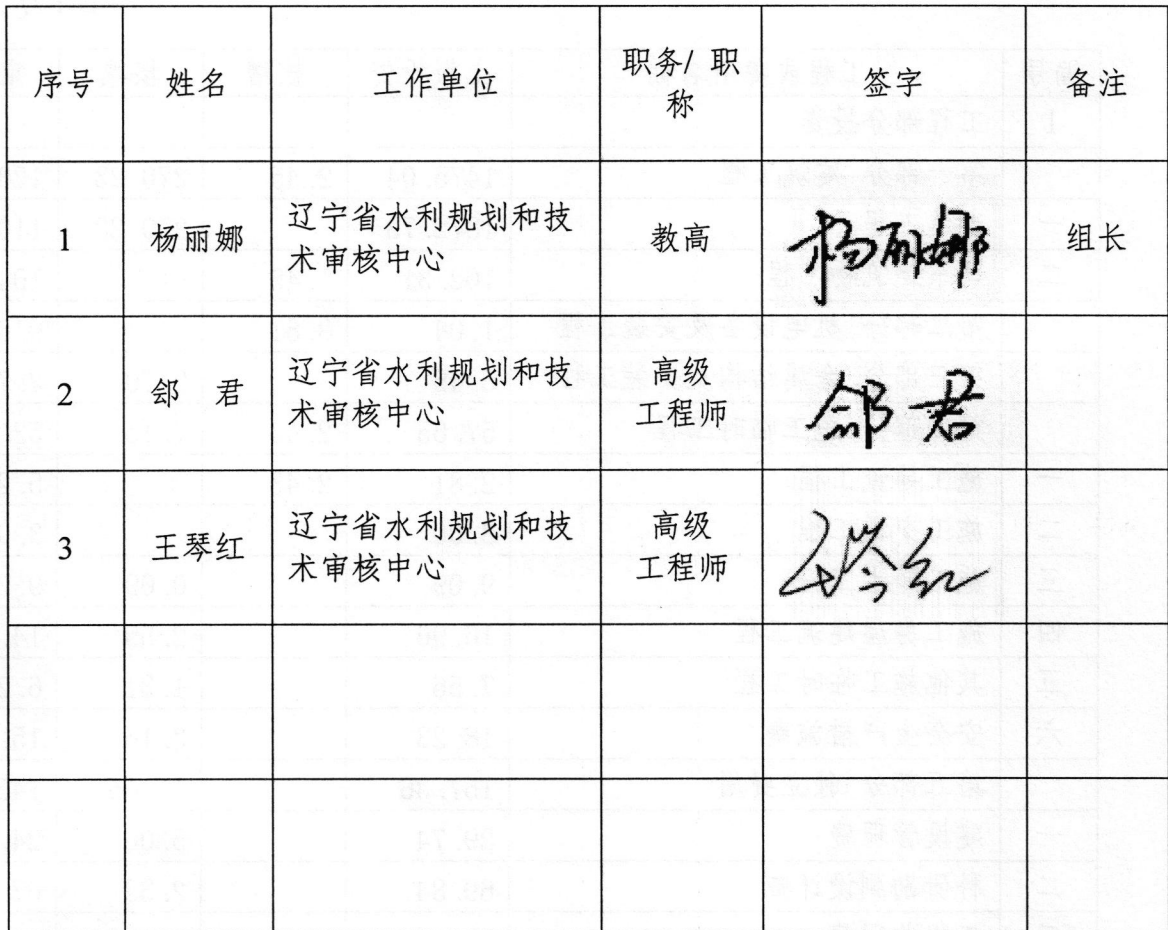 序号 姓名 工作单位 职务/ 职
称 签字 备注
1 杨丽娜 辽宁省水利规划和技
术审核中心 教高 杨丽娜 组长
2 郐 君 辽宁省水利规划和技
术审核中心 高级
工程师 郐君
3 王琴红 辽宁省水利规划和技
术审核中心 高级
工程师 王琴红